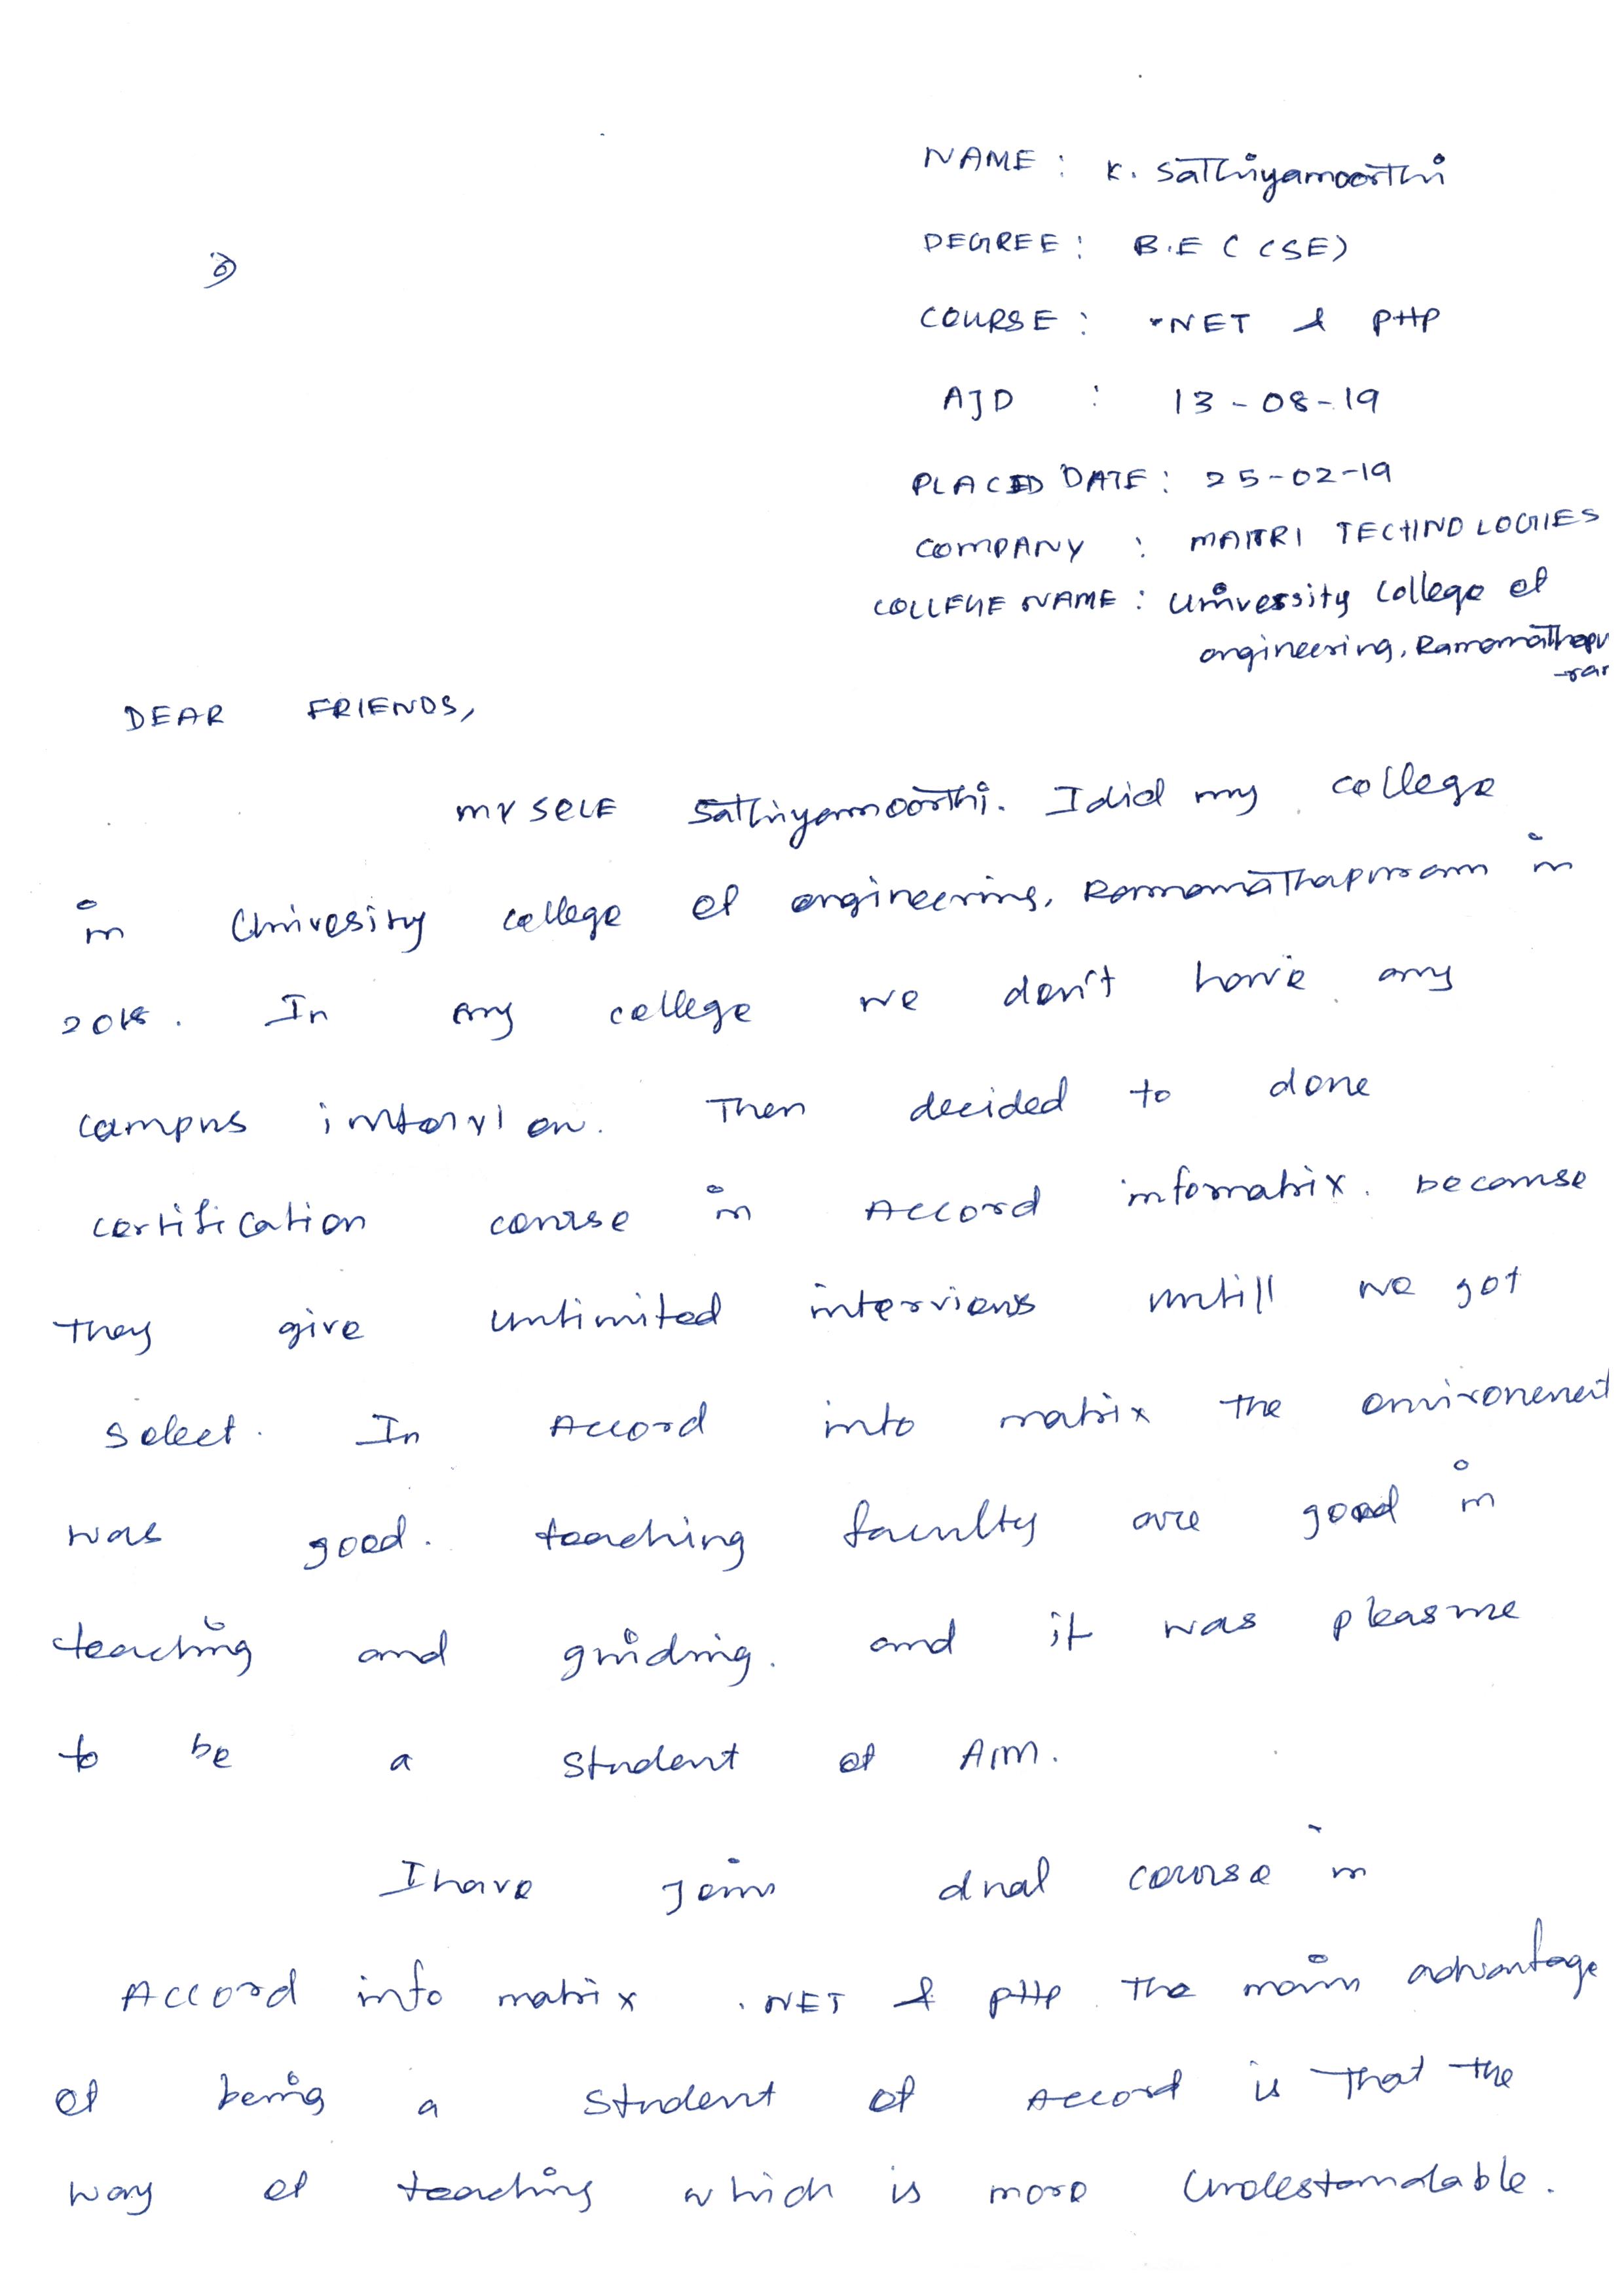 NAME : K. Sathiyamoorthi
DEGREE : B.E (CSE)
COURSE : .NET & PHP
AJD : 13-08-19
PLACED DATE : 25-02-19
COMPANY : MAITRI TECHNOLOGIES
COLLEGE NAME : University College of
engineering, Ramanathapu
-ram
DEAR FRIENDS,
MY SELF Sathiyamoorthi. I did my college
in Univesity college of engineering, Ramanathapuram in
2018. In my college we don't have any
campus intervi on. Then decided to done
certification course in Accord infomatrix. because
They give unlimited interviews untill we got
select. In Accord info matrix the environement
was good. teaching faculty are good in
teaching and guiding. and it was pleasure
to be a student of AIM.
I have join dual course in
Accord info matrix .NET & PHP. The main advantage
of being a student of Accord is that the
way of teaching which is more Undestandable.